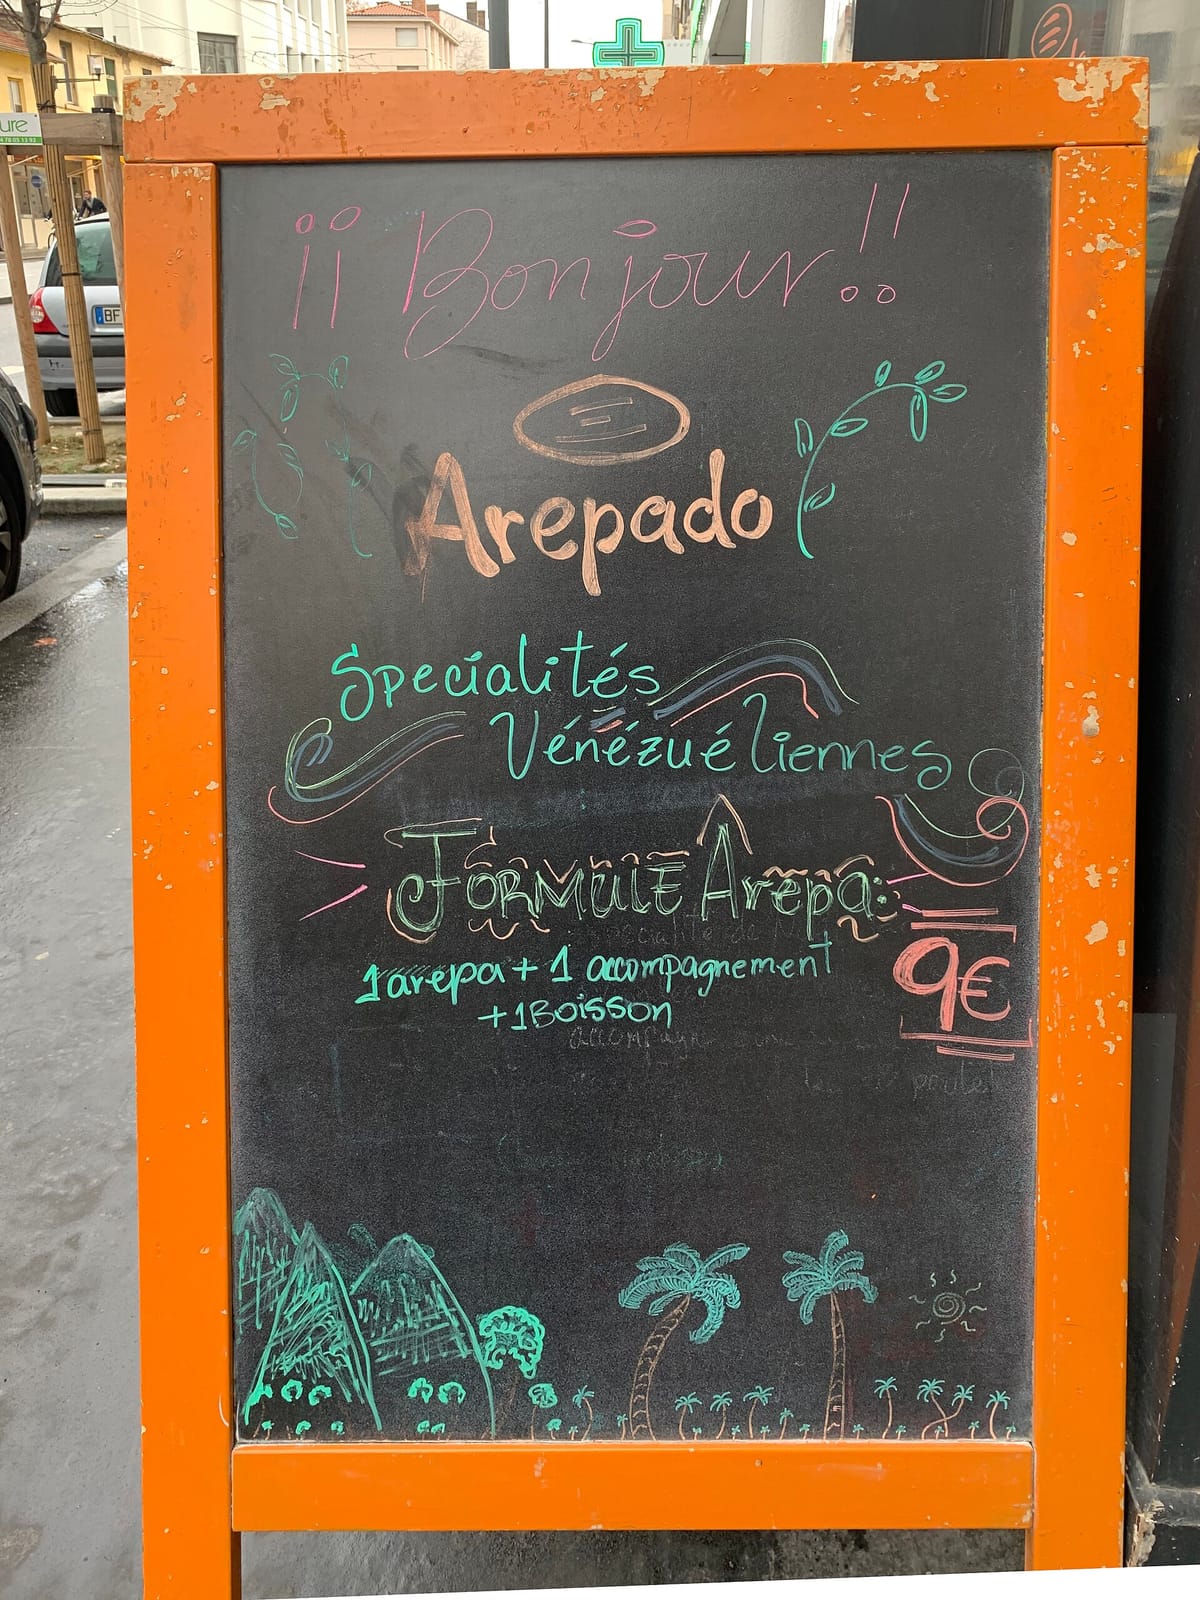 ure
4 78 05 13 93
BF
¡¡ Bonjour !!
Arepado
Spécialités
Vénézuéliennes
Formule Arepa:
1 arepa + 1 accompagnement
+ 1 Boisson
9€